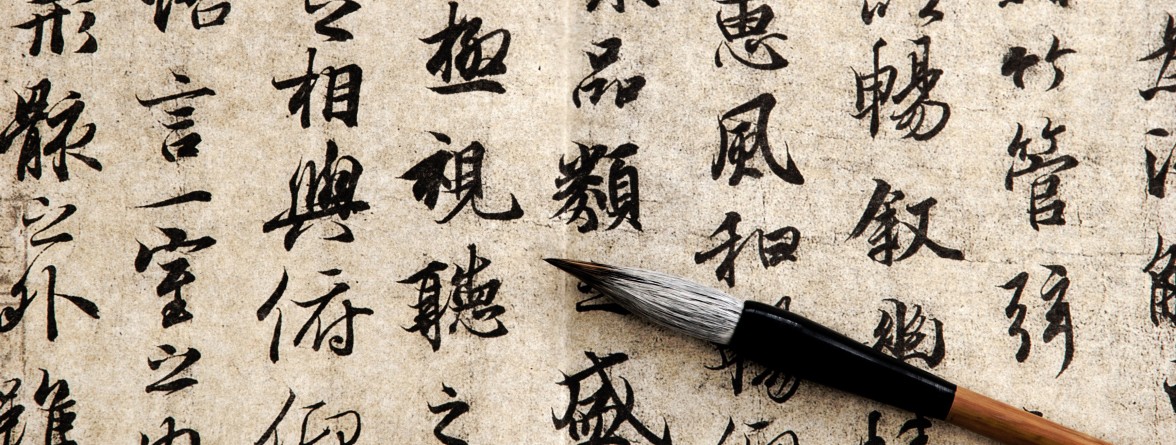 竹管弦
暢叙幽
惠風和暢
品類之盛
極視聽之
之相與俯仰
言一室之内
形骸之外雖